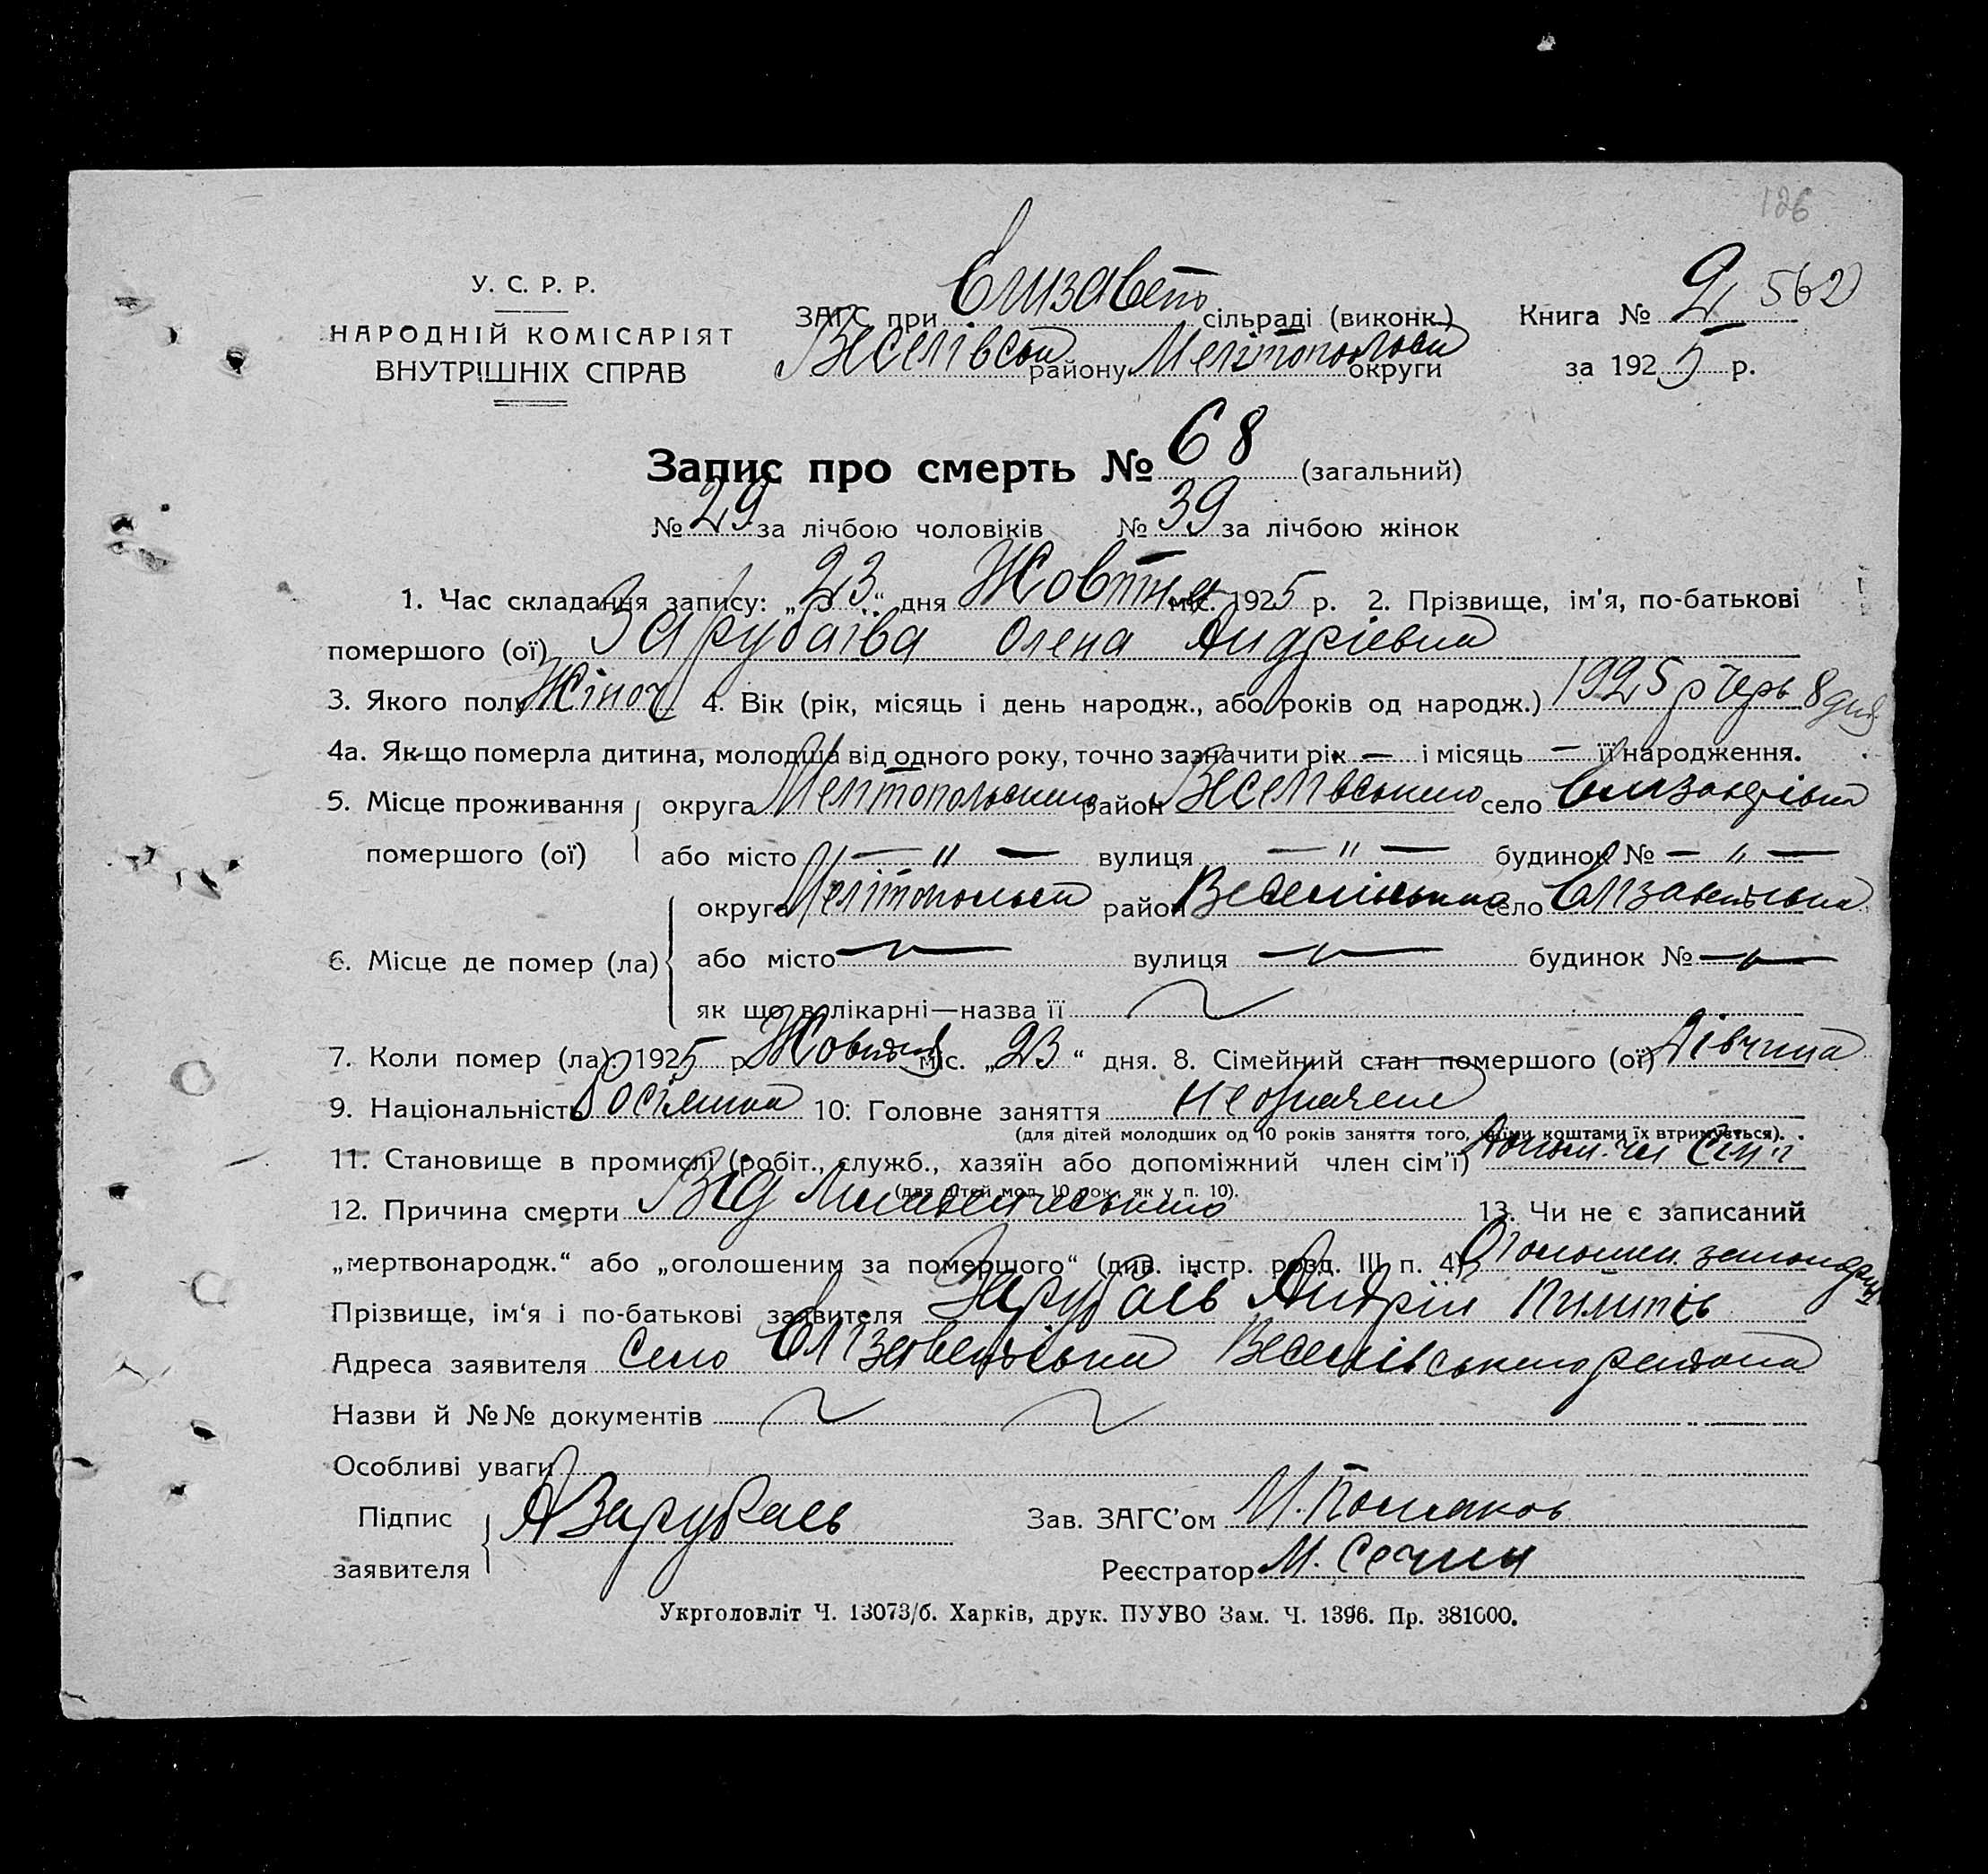 126
У. С. Р. Р.
НАРОДНІЙ КОМІСАРІЯТ
ВНУТРІШНІХ СПРАВ
ЗАГС при Єлизавето сільраді (виконк.)
району округи
Книга № 2 562
за 1925 р.
Запис про смерть № 68 (загальний)
№ 29 за лічбою чоловіків № 39 за лічбою жінок
1. Час складання запису: „23“ дня Жовтня міс. 1925 р. 2. Прізвище, ім'я, по-батькові
помершого (ої) Зарубаїва Олена Андрієвна
3. Якого полу Жіноч 4. Вік (рік, місяць і день народж., або років од народж.) 1925 р Черв 8 дня
4а. Як-що померла дитина, молодша від одного року, точно зазначити рік — і місяць — її народження.
5. Місце проживання округа район село
помершого (ої) або місто — " — вулиця — " — будинок № — " —
округа район село
6. Місце де помер (ла) або місто — " — вулиця — " — будинок № — " —
як що в лікарні—назва її
7. Коли помер (ла) 1925 р Жовтня міс. „23“ дня. 8. Сімейний стан помершого (ої) Дівчина
9. Національність 10. Головне заняття
(для дітей молодших од 10 років заняття того, чиїми коштами їх втримується).
11. Становище в промислі (робіт., служб., хазяїн або допоміжний член сім'ї) Допом. чл Сім'ї
(для дітей мол. 10 рок., як у п. 10).
12. Причина смерти Від 13. Чи не є записаний
„мертвонародж.“ або „оголошеним за помершого“ (див. інстр. розд. III п. 4)
Прізвище, ім'я і по-батькові заявителя Зарубаєв Андрій
Адреса заявителя Село Веселівського района
Назви й №№ документів
Особливі уваги
Підпис заявителя А Зарубаєв
Зав. ЗАГС'ом М. Поляков
Реєстратор М. Сечин
Укрголовліт Ч. 13073/б. Харків, друк. ПУУВО Зам. Ч. 1396. Пр. 381000.